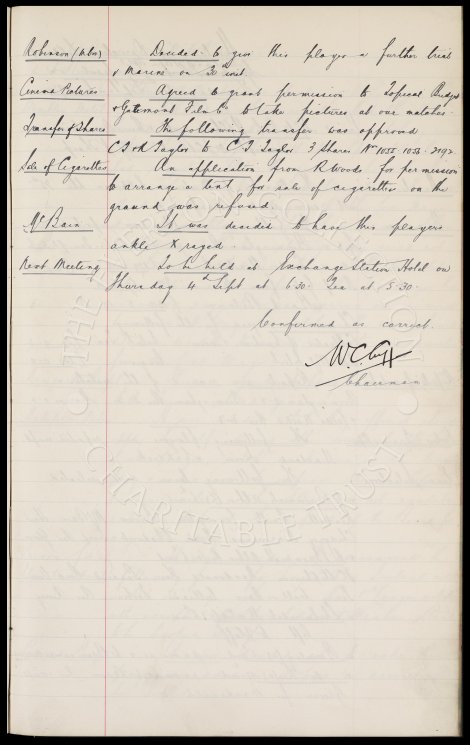 Robinson Decided to give this player a further trial
v Marine on 30 inst
Cinema Pictures Agreed to grant permission to Topical Budget
& Gaumont Film Co to take pictures at our matches.
Transfer of Shares The following transfer was approved
C.J. & A Taylor to C.J. Taylor 3 Shares No 1055. 1056. 2192
Sale of Cigarettes An application from R Woods for permission
to arrange a tent for sale of cigarettes on the
ground was refused.
McBain It was decided to have this players
ankle X rayed.
Next Meeting To be held at Exchange Station Hotel on
Thursday 4th Sept at 6.30. Tea at 5.30.
Confirmed as correct.
W.C. Cuff
Chairman
CHARITABLE TRUST